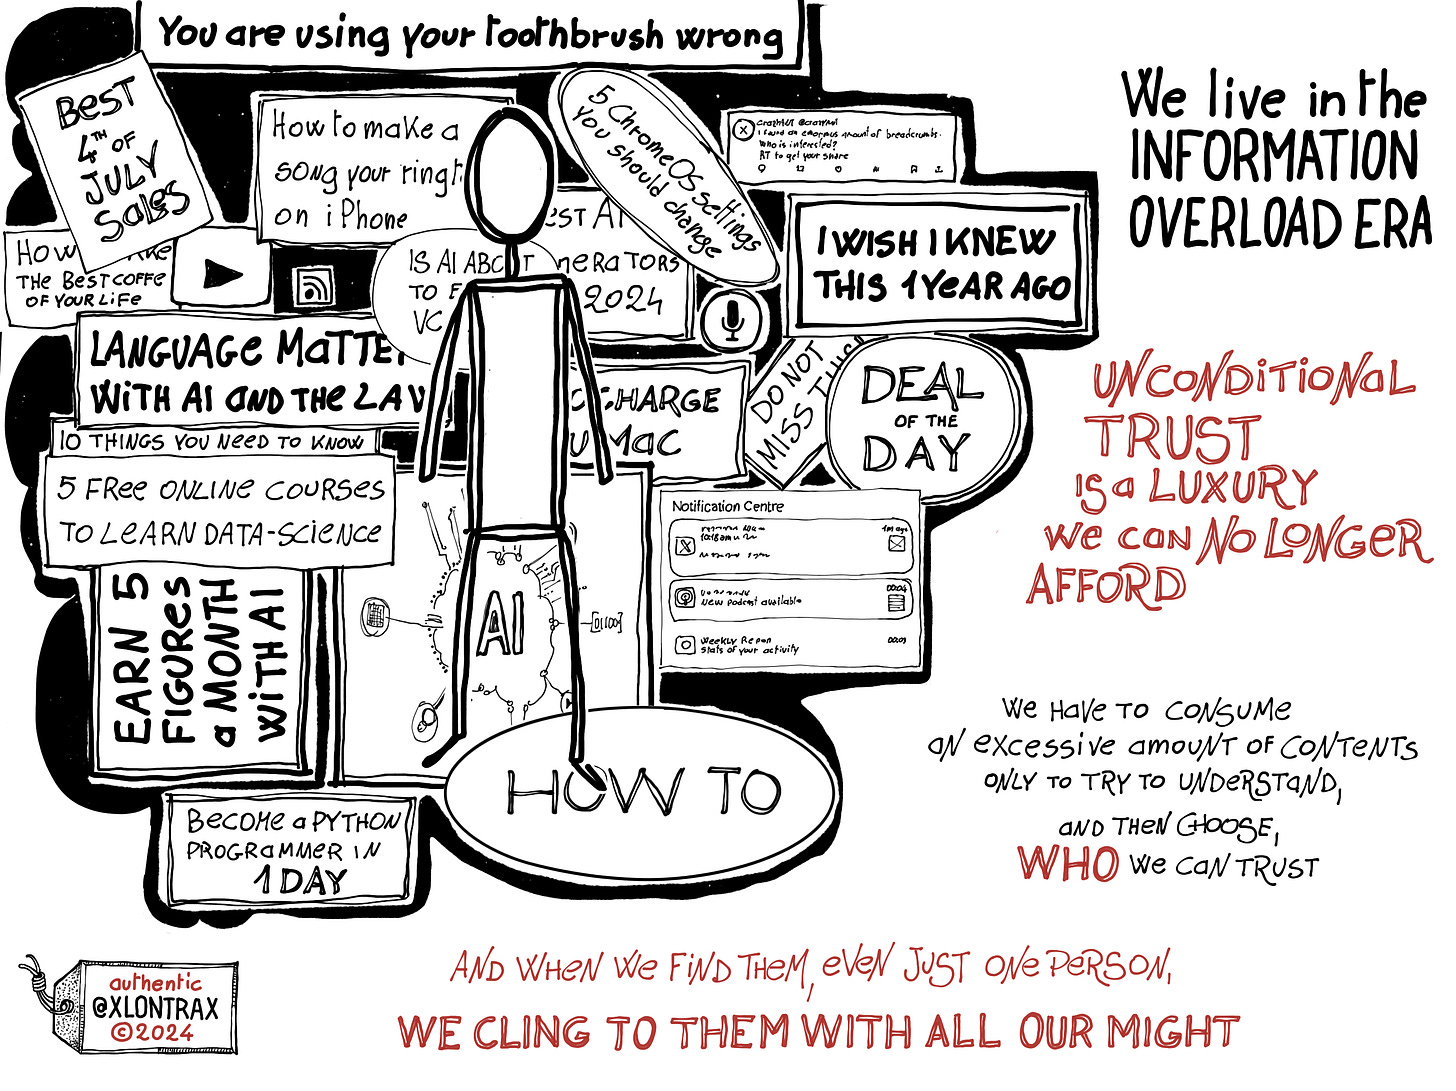 You are using your toothbrush wrong
BEST
4TH OF
JULY
SaLeS
How to make a
song your ringt
on iPhone
5 ChromeOS settings
you should change
crazyNut @crazyNut
I found an enormous amount of breadcrumbs.
Who is interested?
RT to get your share
I WISH I KNEW
THIS 1 YEAR AGO
HOW
THE BEST COFFE
OF YOUR LIFE
IS AI ABC T
TO
VC
EST AI
neRaTORS
2024
LANGUAGE MaTTE
WITH AI AND THE LAW
CHARGE
MaC
DO NOT
MISS THIS
DEAL
OF THE
DAY
10 THINGS YOU NEED TO KNOW
5 FRee ONLINE COURSES
TO LEARN DATA-SCIENCE
EARN 5
FIGURES
a MONTH
WITH AI
AI
Notification Centre
00:04
New podcast available
Weekly Report
Stats of your activity
00:03
HOW TO
BECOME a PYTHON
PROGRAMMER IN
1 DAY
We live in the
INFORMATION
OVERLOAD ERA
UNCONDITIONAL
TRUST
IS a LUXURY
We can NO LONGER
AFFORD
We HAVE TO CONSUME
AN EXCESSIVE AMOUNT OF CONTENTS
ONLY TO TRY TO UNDERSTAND,
AND THEN CHOOSE,
WHO WE CAN TRUST
AND WHEN WE FIND THEM, EVEN JUST ONE PERSON,
WE CLING TO THEM WITH ALL OUR MIGHT
authentic
@XLONTRAX
©2024